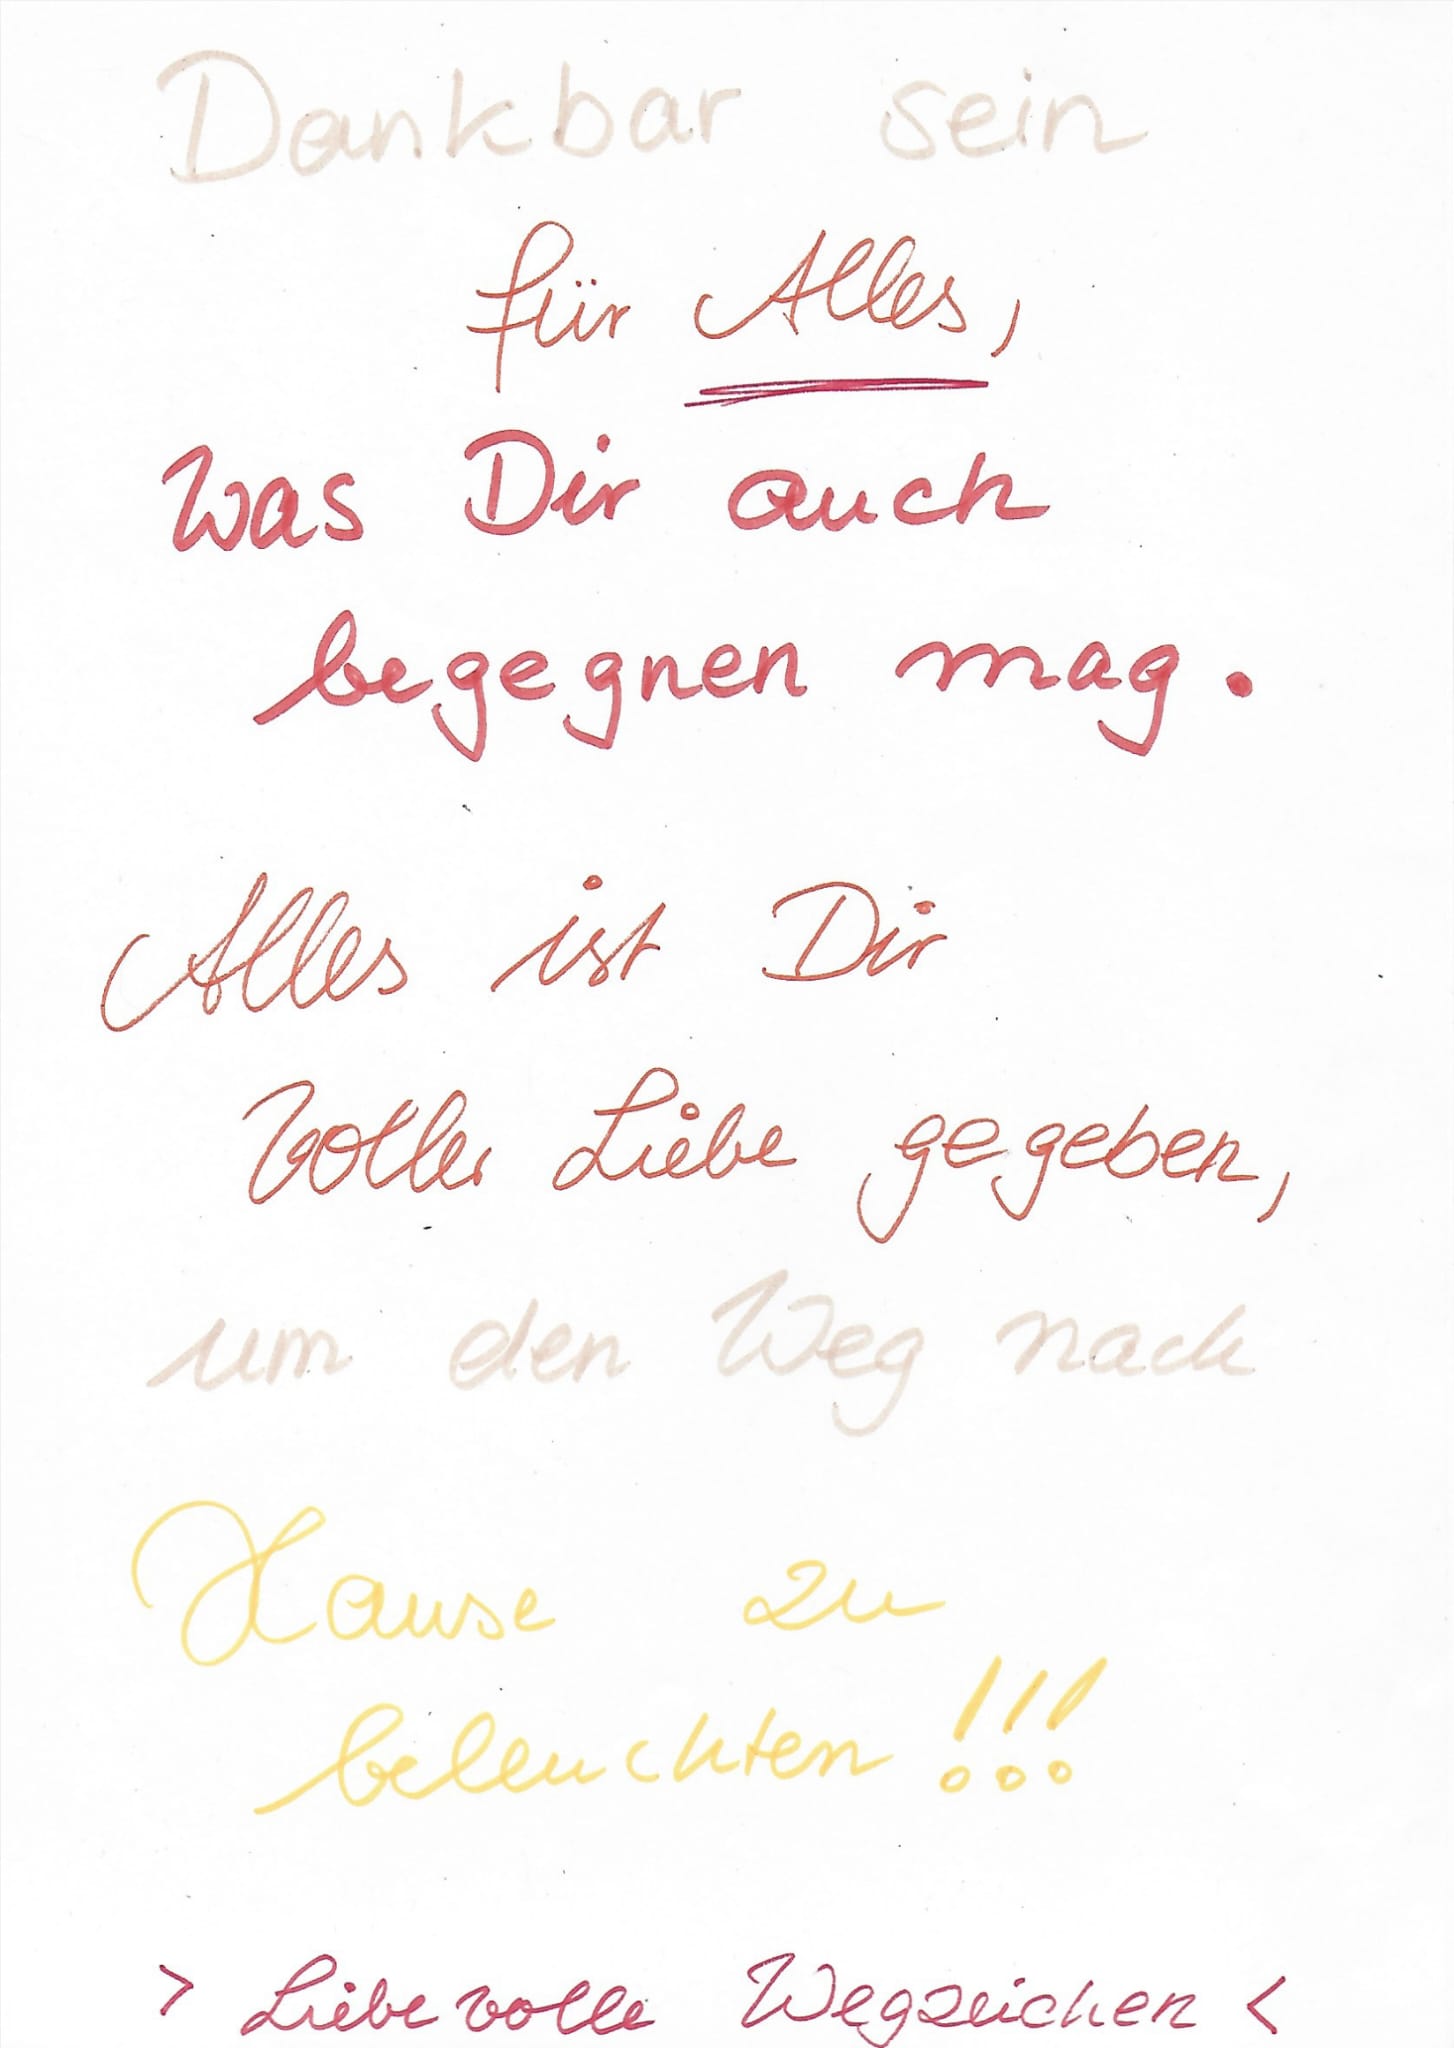 Dankbar sein
für Alles,
Was Dir auch
begegnen mag.
Alles ist Dir
Voller Liebe gegeben,
um den Weg nach
Hause zu
beleuchten!!!
> Liebevolle Wegzeichen <